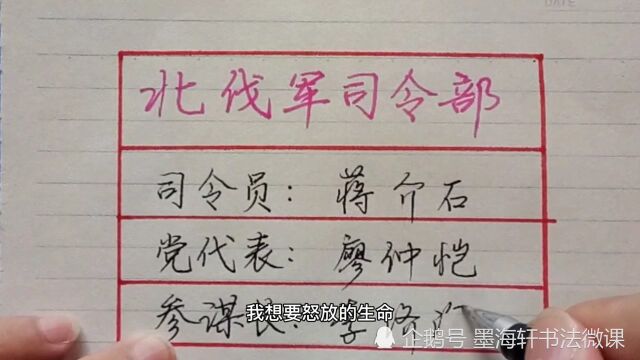 DATE
北伐军司令部
司令员：蒋介石
党代表：廖仲恺
参谋长：李济
我想要怒放的生命
企鹅号 墨海轩书法微课